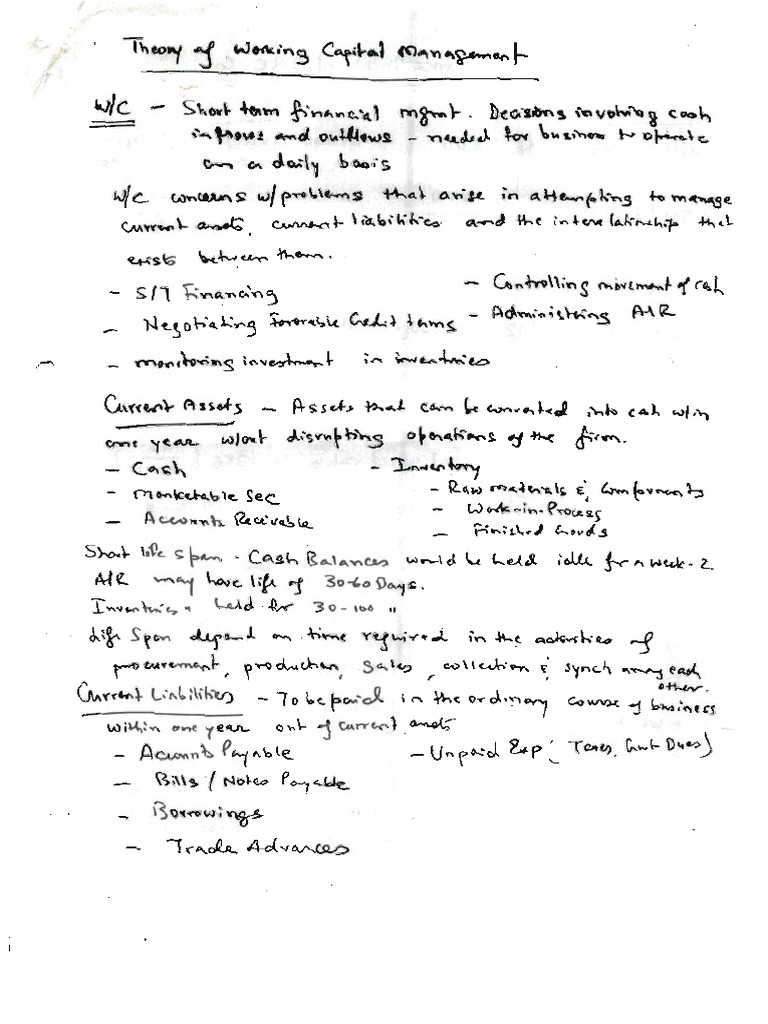 Theory of Working Capital Management
W/C - Short term financial mgmt. Decisions involving cash
inflows and outflows - needed for business to operate
on a daily basis
W/C concerns w/problems that arise in attempting to manage
current assets, current liabilities and the interrelationship that
exists between them.
- S/T Financing
- Controlling movement of cash
- Negotiating Favorable Credit terms
- Administering A/R
- monitoring investment in inventories
Current Assets - Assets that can be converted into cash w/in
one year w/out disrupting operations of the firm.
- Cash
- Inventory
- Marketable Sec
- Raw materials & Components
- Accounts Receivable
- Work-in-Process
- Finished Goods
Short life span - Cash Balances would be held idle for a week-2
A/R may have life of 30-60 Days.
Inventories " held for 30-100 "
Life Span depend on time required in the activities of
procurement, production, Sales, collection & synch among each
other.
Current Liabilities - To be paid in the ordinary course of business
within one year out of current assets
- Accounts Payable
- Unpaid Exp (Taxes, Govt Dues)
- Bills / Notes Payable
- Borrowings
- Trade Advances